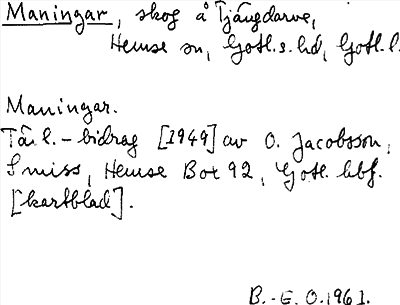 Maningar, skog å Tjängdarve,
Hemse sn, Gotl. s. hd, Gotl. l.
Maningar.
Täfl.-bidrag [1949] av O. Jacobsson,
Smiss, Hemse Box 92, Gotl. hbf.
[kartblad].
B.-E. O. 1961.